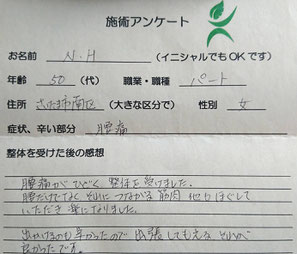 施術アンケート
お名前 N・H (イニシャルでもOKです)
年齢 50 (代) 職業・職種 パート
住所 さいたま市南区 (大きな区分で) 性別 女
症状、辛い部分 腰痛
整体を受けた後の感想
腰痛がひどく 整体を受けました。
腰だけでなく それにつながる筋肉 他もほぐして
いただき 楽になりました。
出かけるのも辛かったので 出張してもらえ
良かったです。